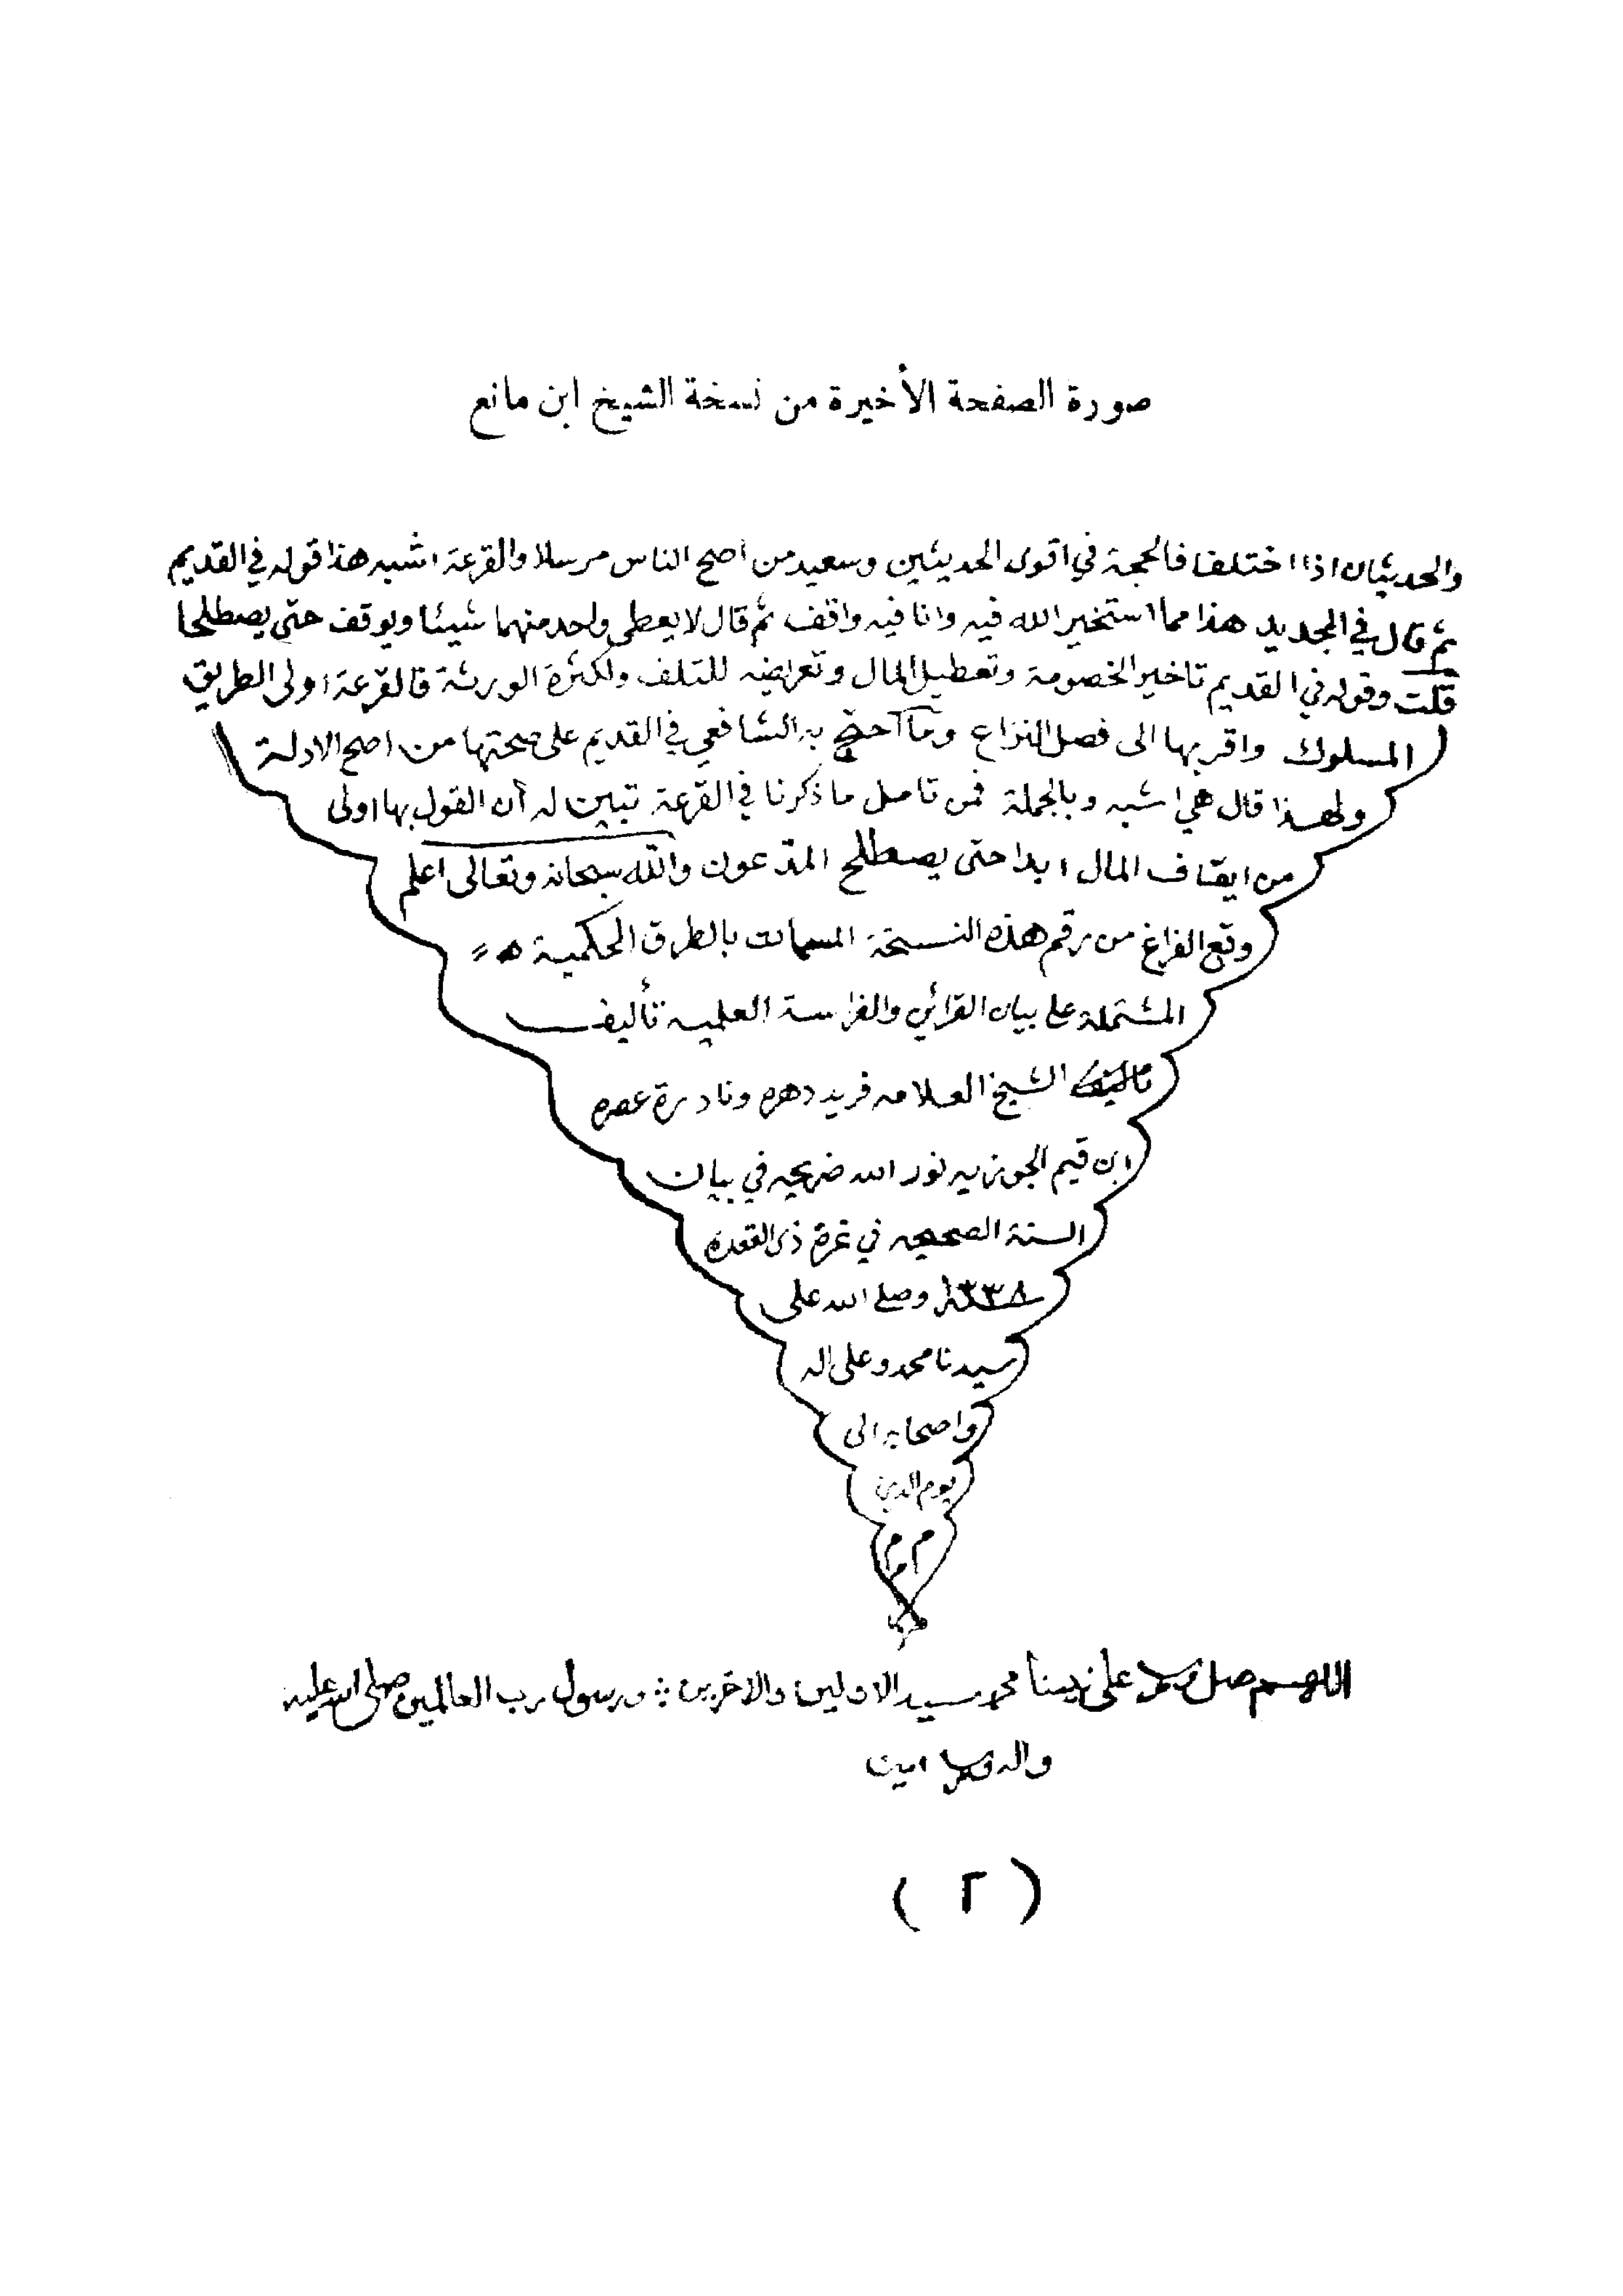 صورة الصفحة الأخيرة من نسخة الشيخ ابن مانع
والحديثان اذا اختلفا فالحجة في اقوى الحديثين وسعيد من اصح الناس مرسلا والقرعة اشبه هذا قوله في القديم
ثم قال في الجديد هذا مما استخير الله فيه وانا فيه واقف ثم قال لا يعطى واحد منهما شيئا ويوقف حتى يصطلحا
قلت وقوله في القديم تاخير الخصومة وتعطيل المال وتعريضه للتلف ولكثرة الورثة فالقرعة اولى الطريق
المسلوك واقربها الى فصل النزاع وما احتج به الشافعي في القديم على صحتها من اصح الادلة
ولهذا قال هي اشبه وبالجملة فمن تامل ما ذكرنا في القرعة تبين له أن القول بها اولى
من ايقاف المال ابدا حتى يصطلح المدعون والله سبحانه وتعالى اعلم
وقع الفراغ من رقم هذه النسخة المسمات بالطرق الحكمية ه
المشتملة على بيان القرائن والفراسة العلمية تأليف
تاليف الشيخ العلامه فريد دهره ونادرة عصره
ابن قيم الجوزيه نور الله ضريحه في بيان
السنة الصحيحه في غرة ذي القعده
١٣٣٨ وصلى الله على
سيدنا محمد وعلى اله
واصحابه الى
يوم الدين
م م م
اللهم صل وسلم على نبينا محمد سيد الاولين والاخرين ورسول رب العالمين صلى الله عليه
واله وسلم امين
( ٢ )